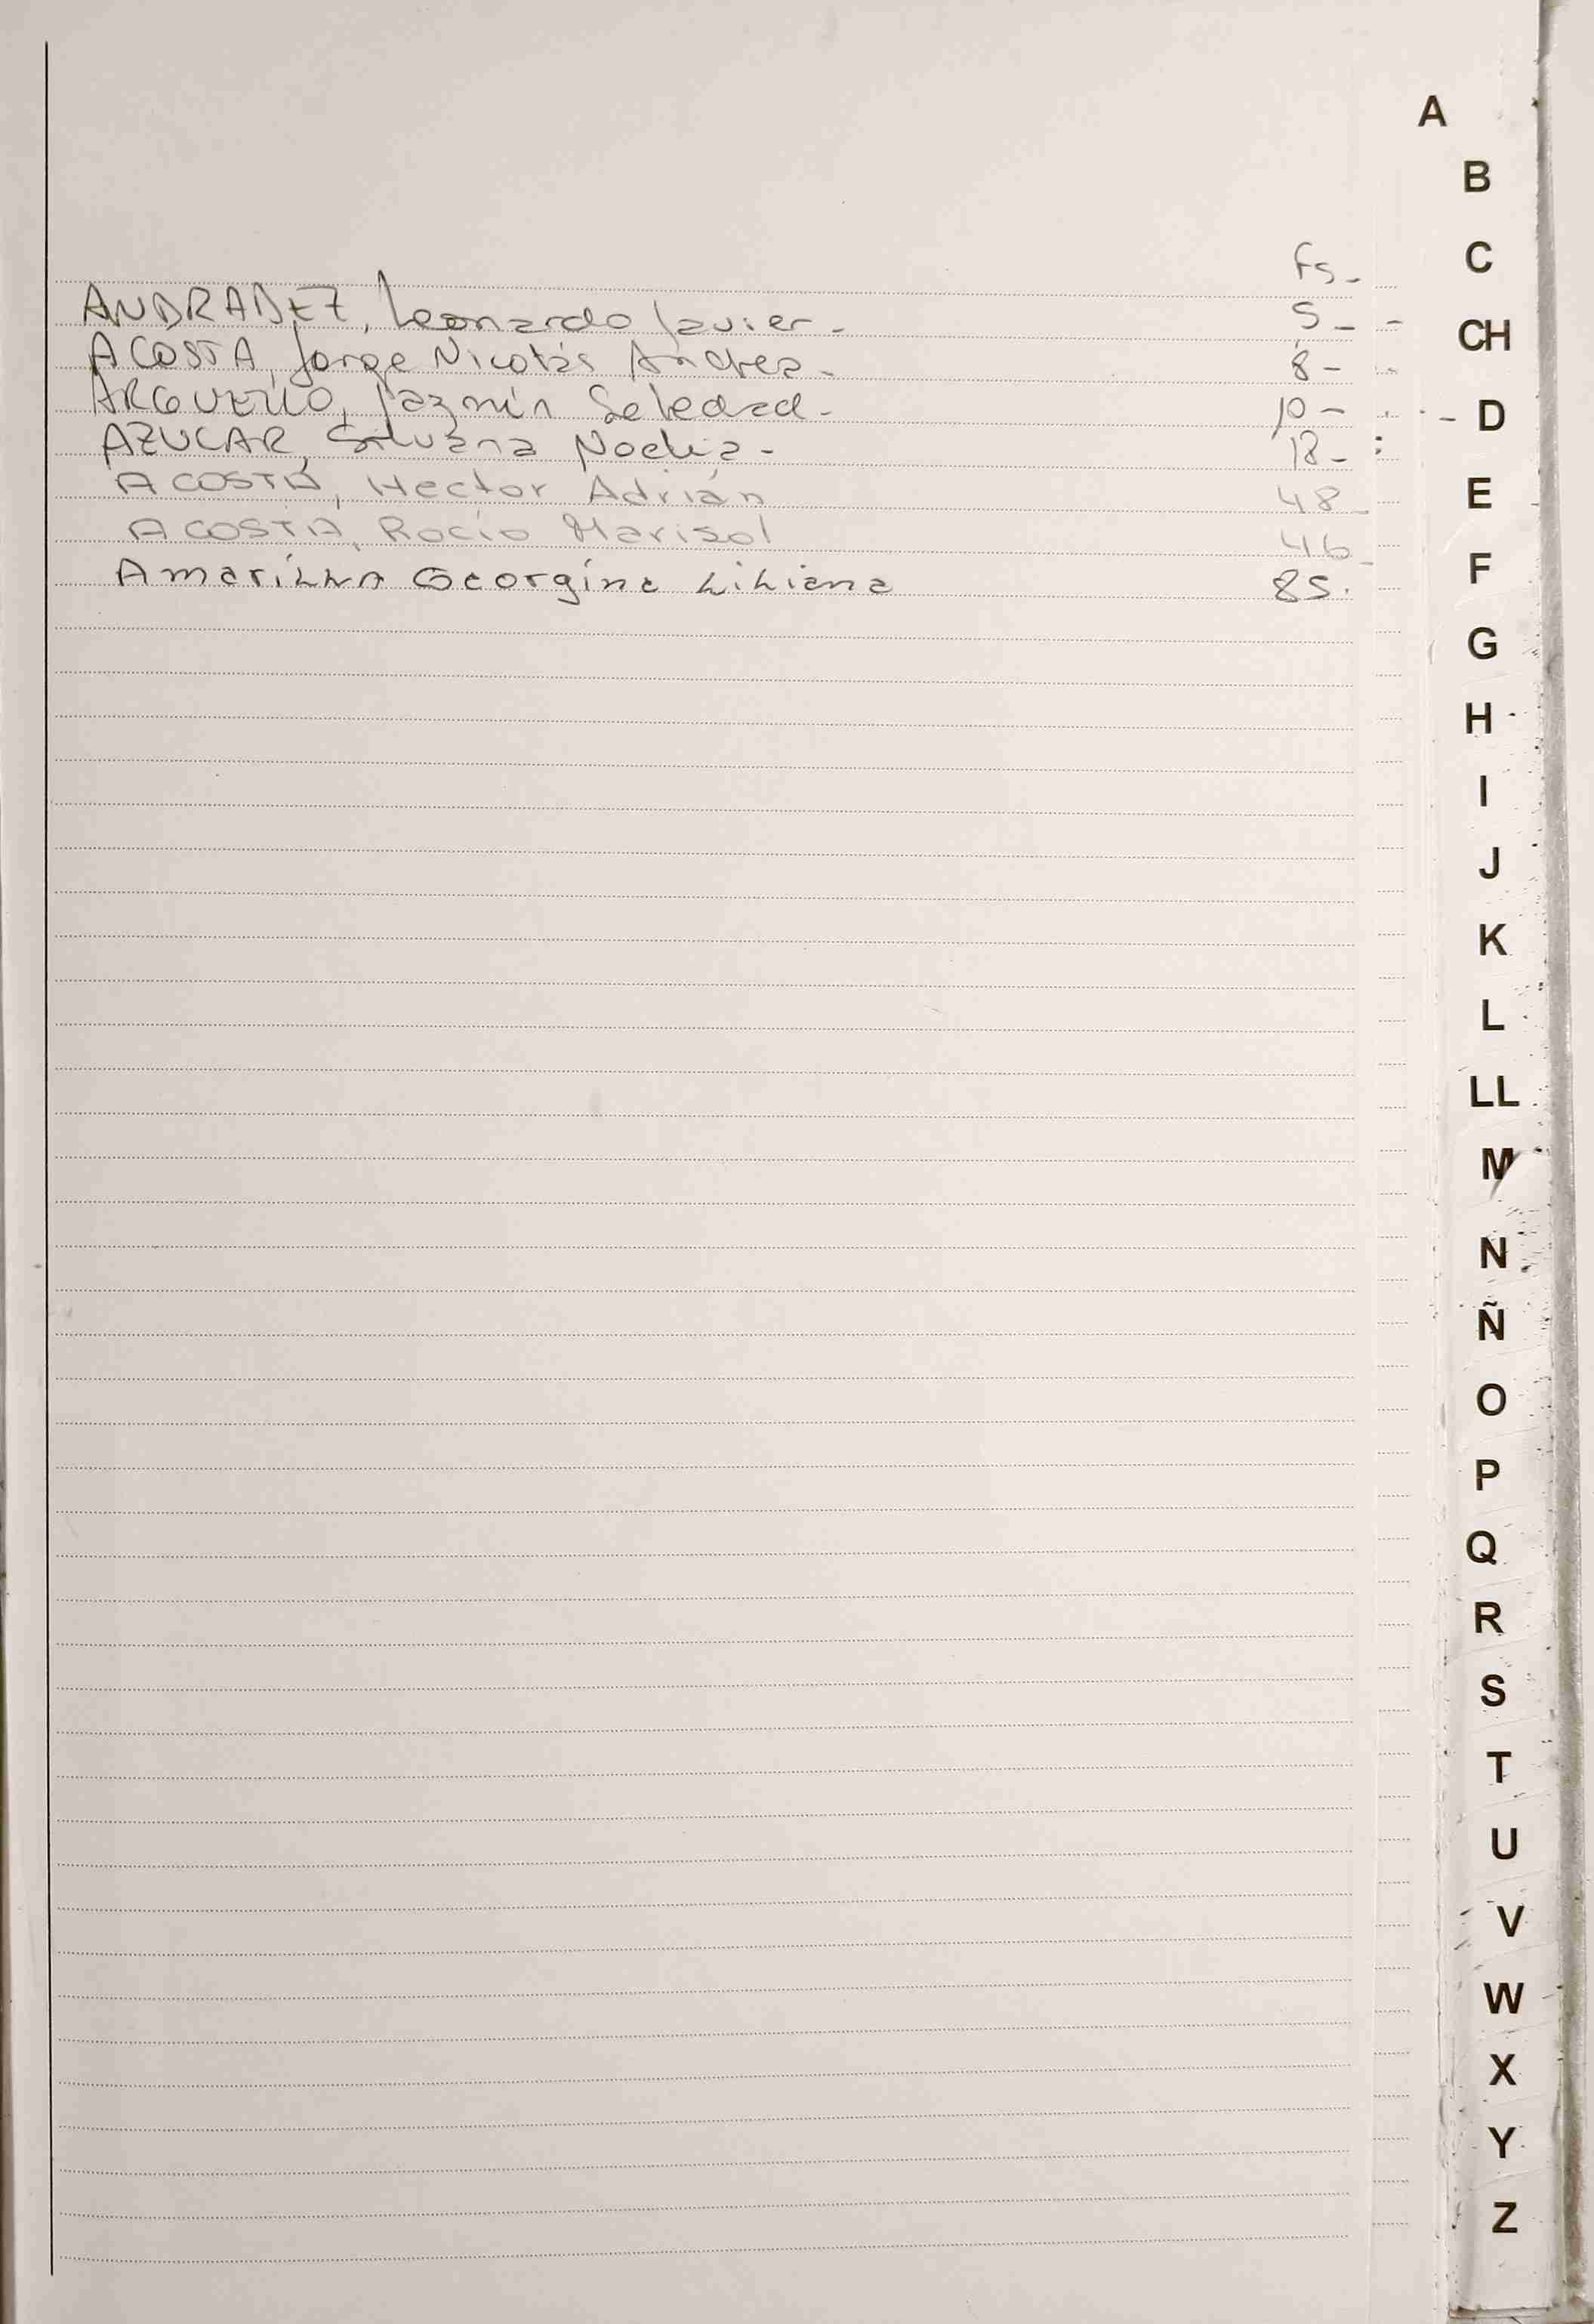 A
B
C
Fs-
ANDRADEZ, Leonardo Javier - 5 -
CH
ACOSTA, Jorge Nicolás Andrea - 8 -
ARGUELLO, Jazmín Soledad - 10 -
D
AZUCAR, Silvana Noelia - 12 -
ACOSTA, Hector Adrián 48 -
E
ACOSTA, Rocío Marisol 46 -
Amarilla Georgina Liliana 85.
F
G
H
I
J
K
L
LL
M
N
Ñ
O
P
Q
R
S
T
U
V
W
X
Y
Z